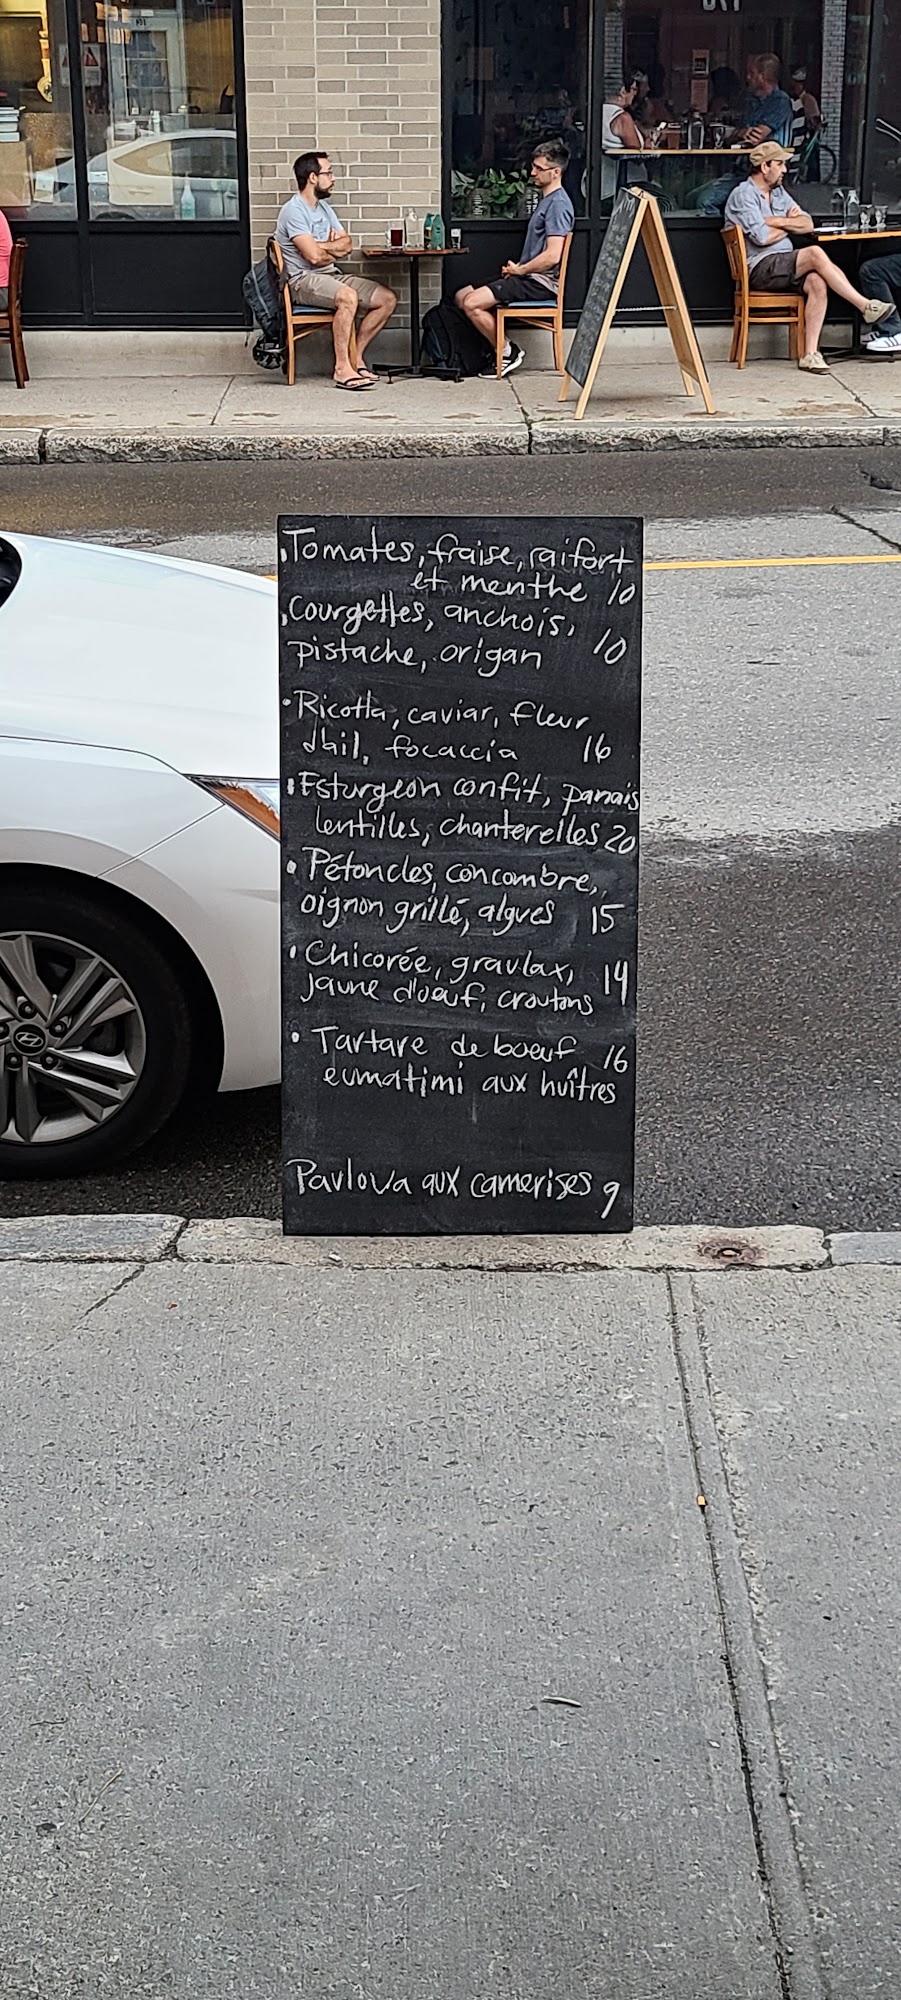 • Tomates, fraise, raifort
et menthe 10
• Courgettes, anchois,
pistache, origan 10
• Ricotta, caviar, fleur
d'ail, focaccia 16
• Esturgeon confit, panais
lentilles, chanterelles 20
• Pétoncles, concombre,
oignon grillé, algues 15
• Chicorée, gravlax,
jaune d'oeuf, croutons 14
• Tartare de boeuf 16
eumatimi aux huîtres
Pavlova aux camerises 9